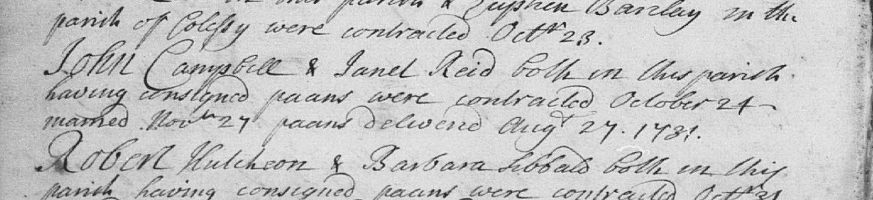 in this parish & Stephen Barclay in the
parish of Colessy were contracted Octr 23.
John Campbell & Janet Reid both in this parish
having consigned paans were contracted October 24
married Novbr 27 paans delivered Augt 27. 1731.
Robert Hutcheon & Barbara Sibbald both in this
parish having consigned paans were contracted Octr 31